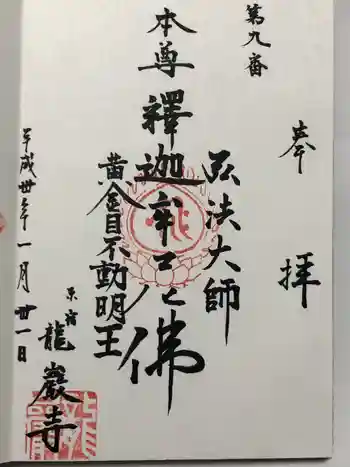 第九番
奉
拝
弘法大師
本尊 釋迦牟尼佛
黄金目不動明王
平成卅年一月廿一日
原宿
龍巖寺